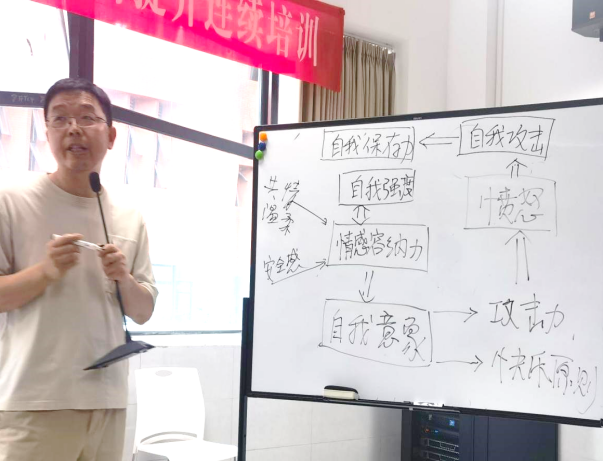 提升连续培训
自我保存力
自我攻击
自我强度
愤怒
共情
温柔
情感容纳力
安全感
自我意象
攻击力
快乐原则